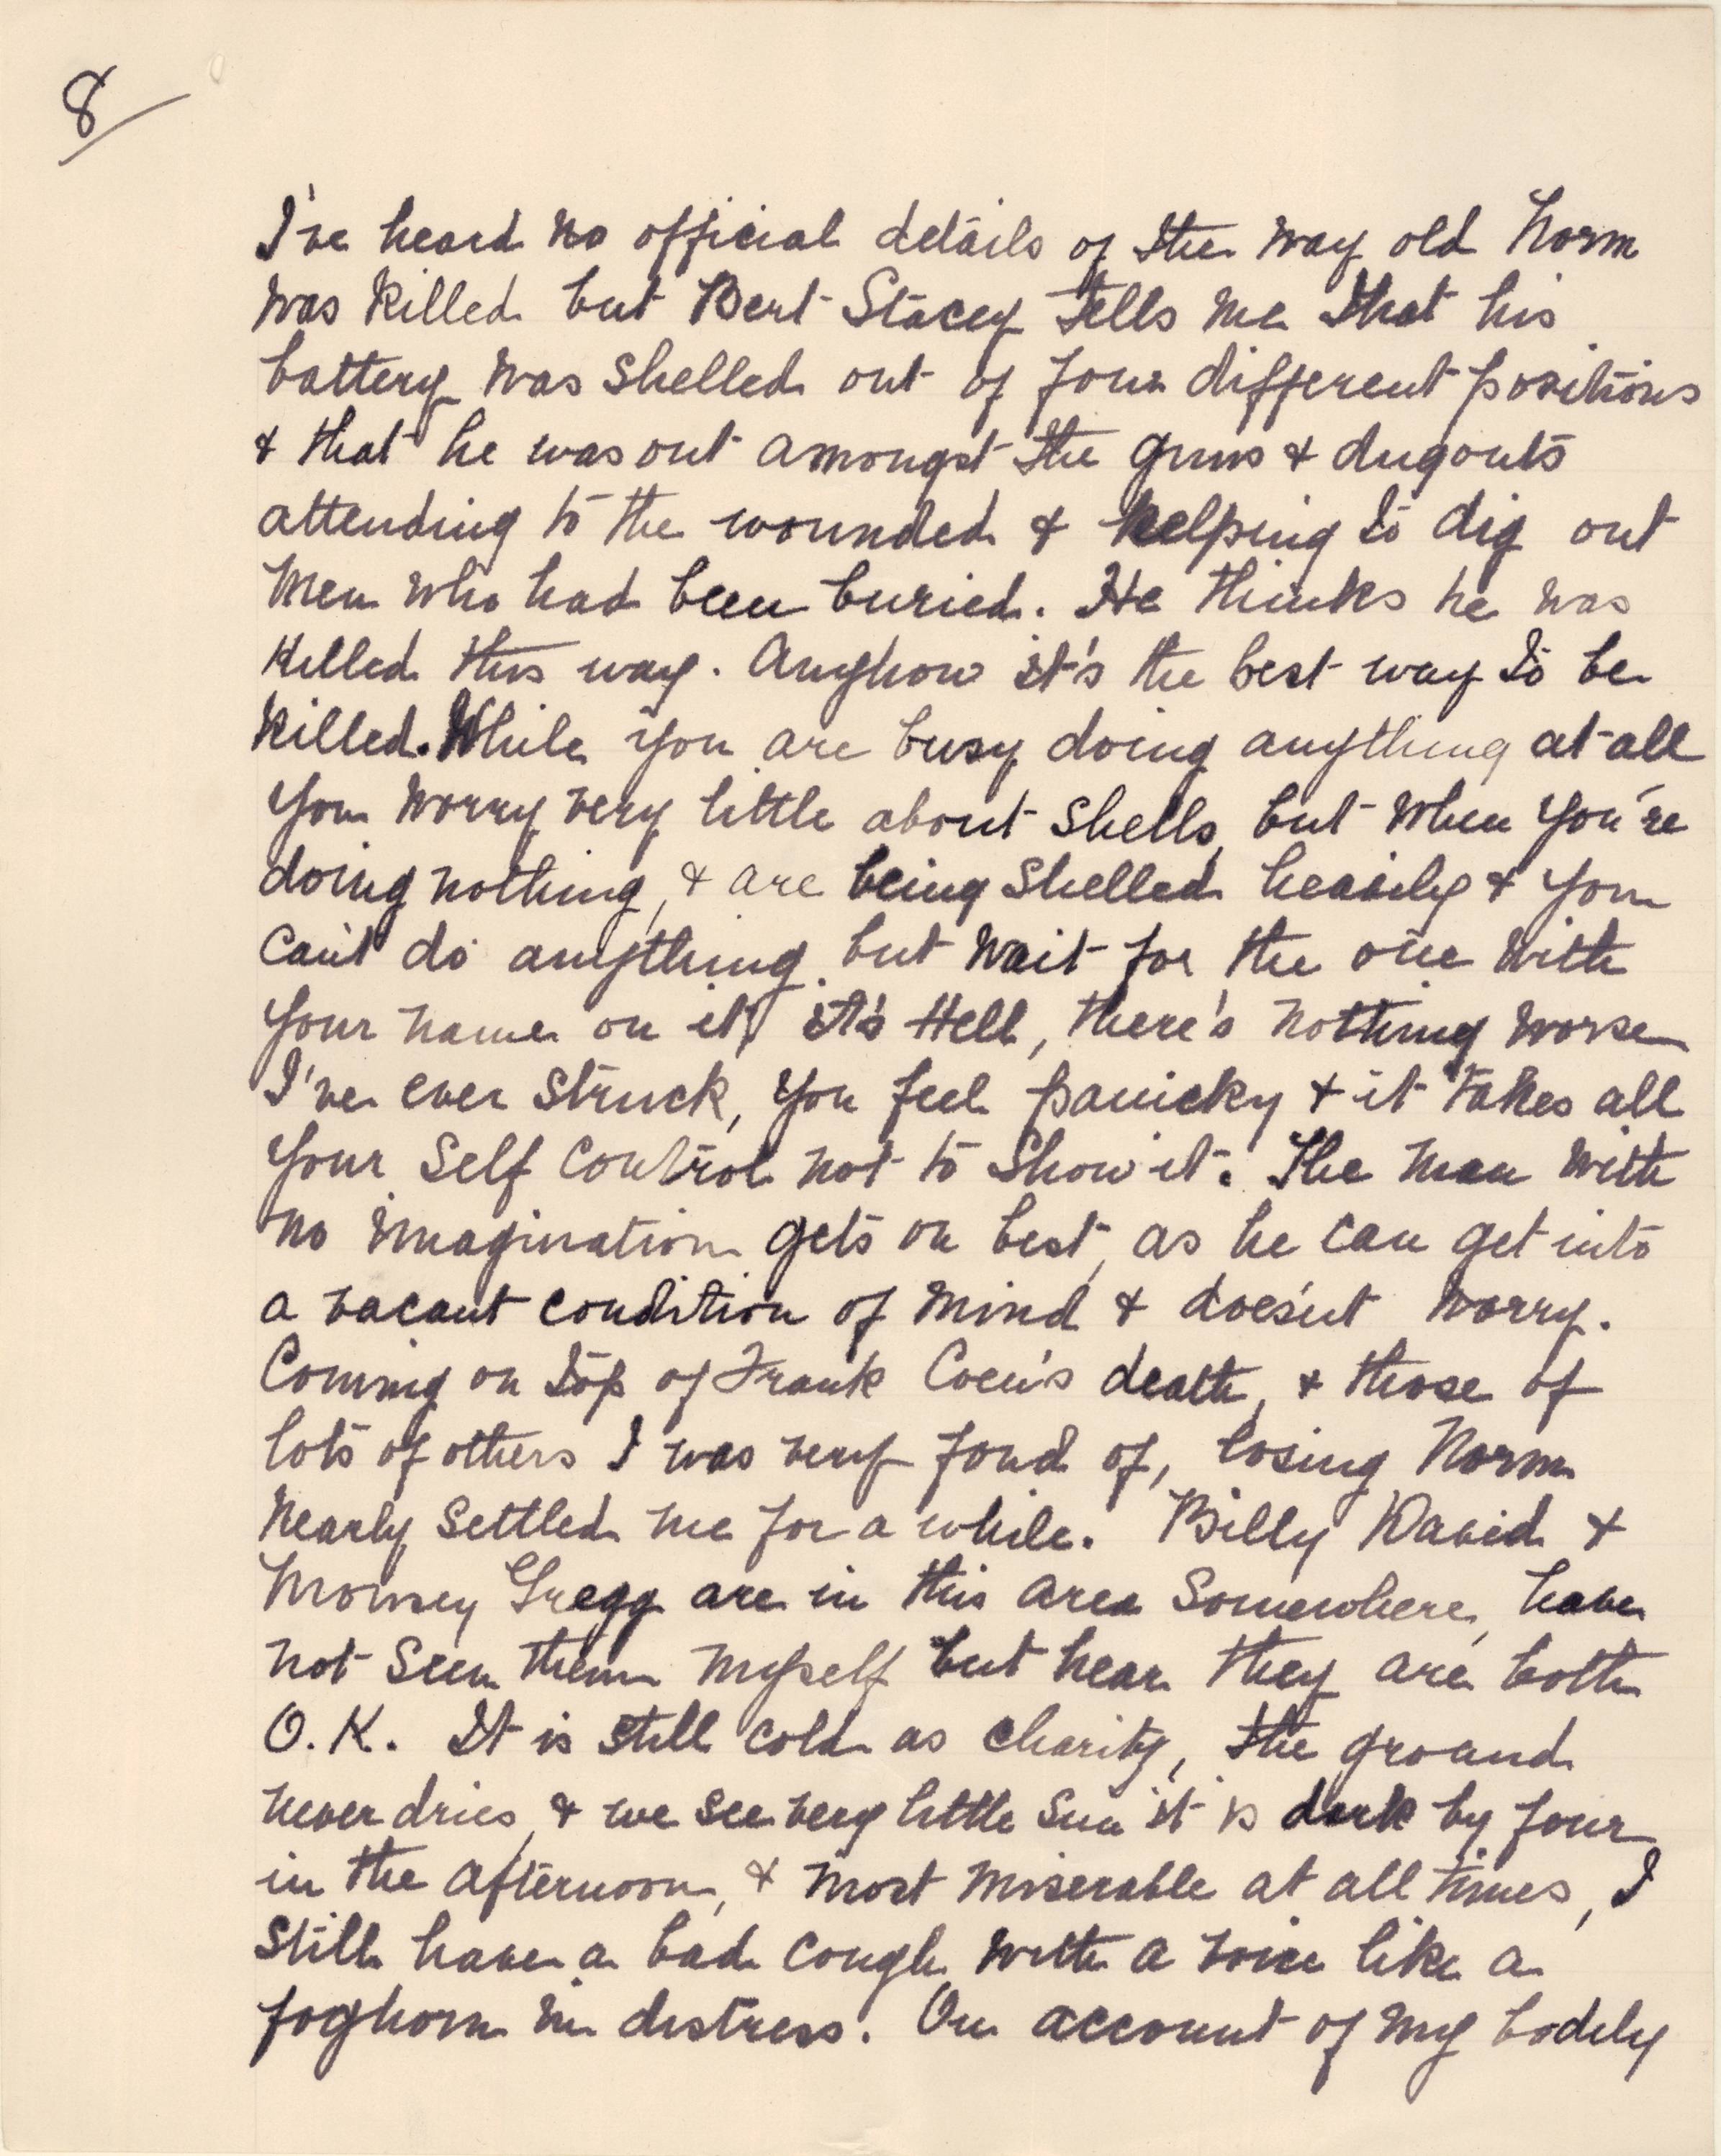 8
I've heard no official details of the way old Norm
was killed but Bert Stacey tells me that his
battery was shelled out of four different positions
& that he was out amongst the guns & dugouts
attending to the wounded & helping to dig out
men who had been buried. He thinks he was
killed this way. Anyhow it's the best way to be
killed. While you are busy doing anything at all
you worry very little about shells, but when you're
doing nothing, & are being shelled heavily & you
can't do anything but wait for the one with
your name on it, it's Hell, there's nothing worse
I've ever struck, you feel panicky & it takes all
your self control not to show it. The man with
no imagination gets on best, as he can get into
a vacant condition of mind & does'nt worry.
Coming on top of Frank Coen's death, & those of
lots of others I was very fond of, losing Norm
nearly settled me for a while. Billy David &
Gregg are in this area somewhere, have
not seen them myself but hear they are both
O.K. It is still cold as charity, the ground
never dries, & we see very little sun it is dark by four
in the afternoon, & most miserable at all times, I
still have a bad cough with a voice like a
foghorn in distress. On account of my bodily